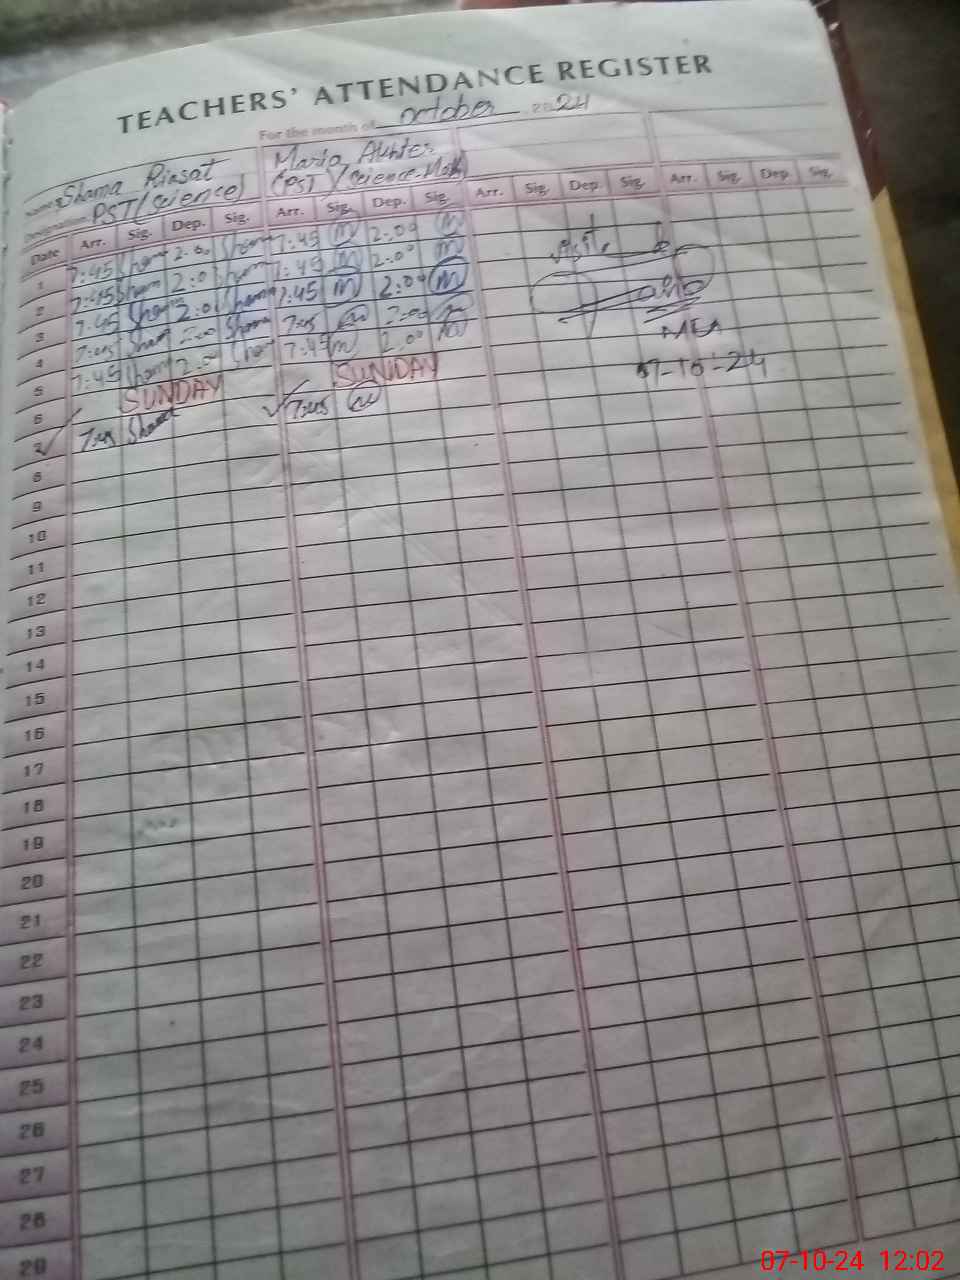 TEACHERS' ATTENDANCE REGISTER
For the month of October 2024
Name Shama Riasat Maria Akhter
Designation PST (science) (PST) (science-Math)
Date Arr. Sig. Dep. Sig. Arr. Sig. Dep. Sig. Arr. Sig. Dep. Sig. Arr. Sig. Dep. Sig.
1 7:45 Sham 2:00 Sham 7:45 m 2:00 m
2 7:45 Sham 2:0 Sham 7:45 m 2:00 m
3 7:45 Sham 2:0 Sham 7:45 m 2:00 m
4 7:45 Sham 2:00 Sham 7:45 m 2:00 m
5 7:45 Sham 2:00 Sham 7:45 m 2:00 m
6 SUNDAY SUNDAY
7 7:45 Sham 7:45 m
MEA
07-10-24
8
9
10
11
12
13
14
15
16
17
18
19
20
21
22
23
24
25
26
27
28
29
07-10-24 12:02